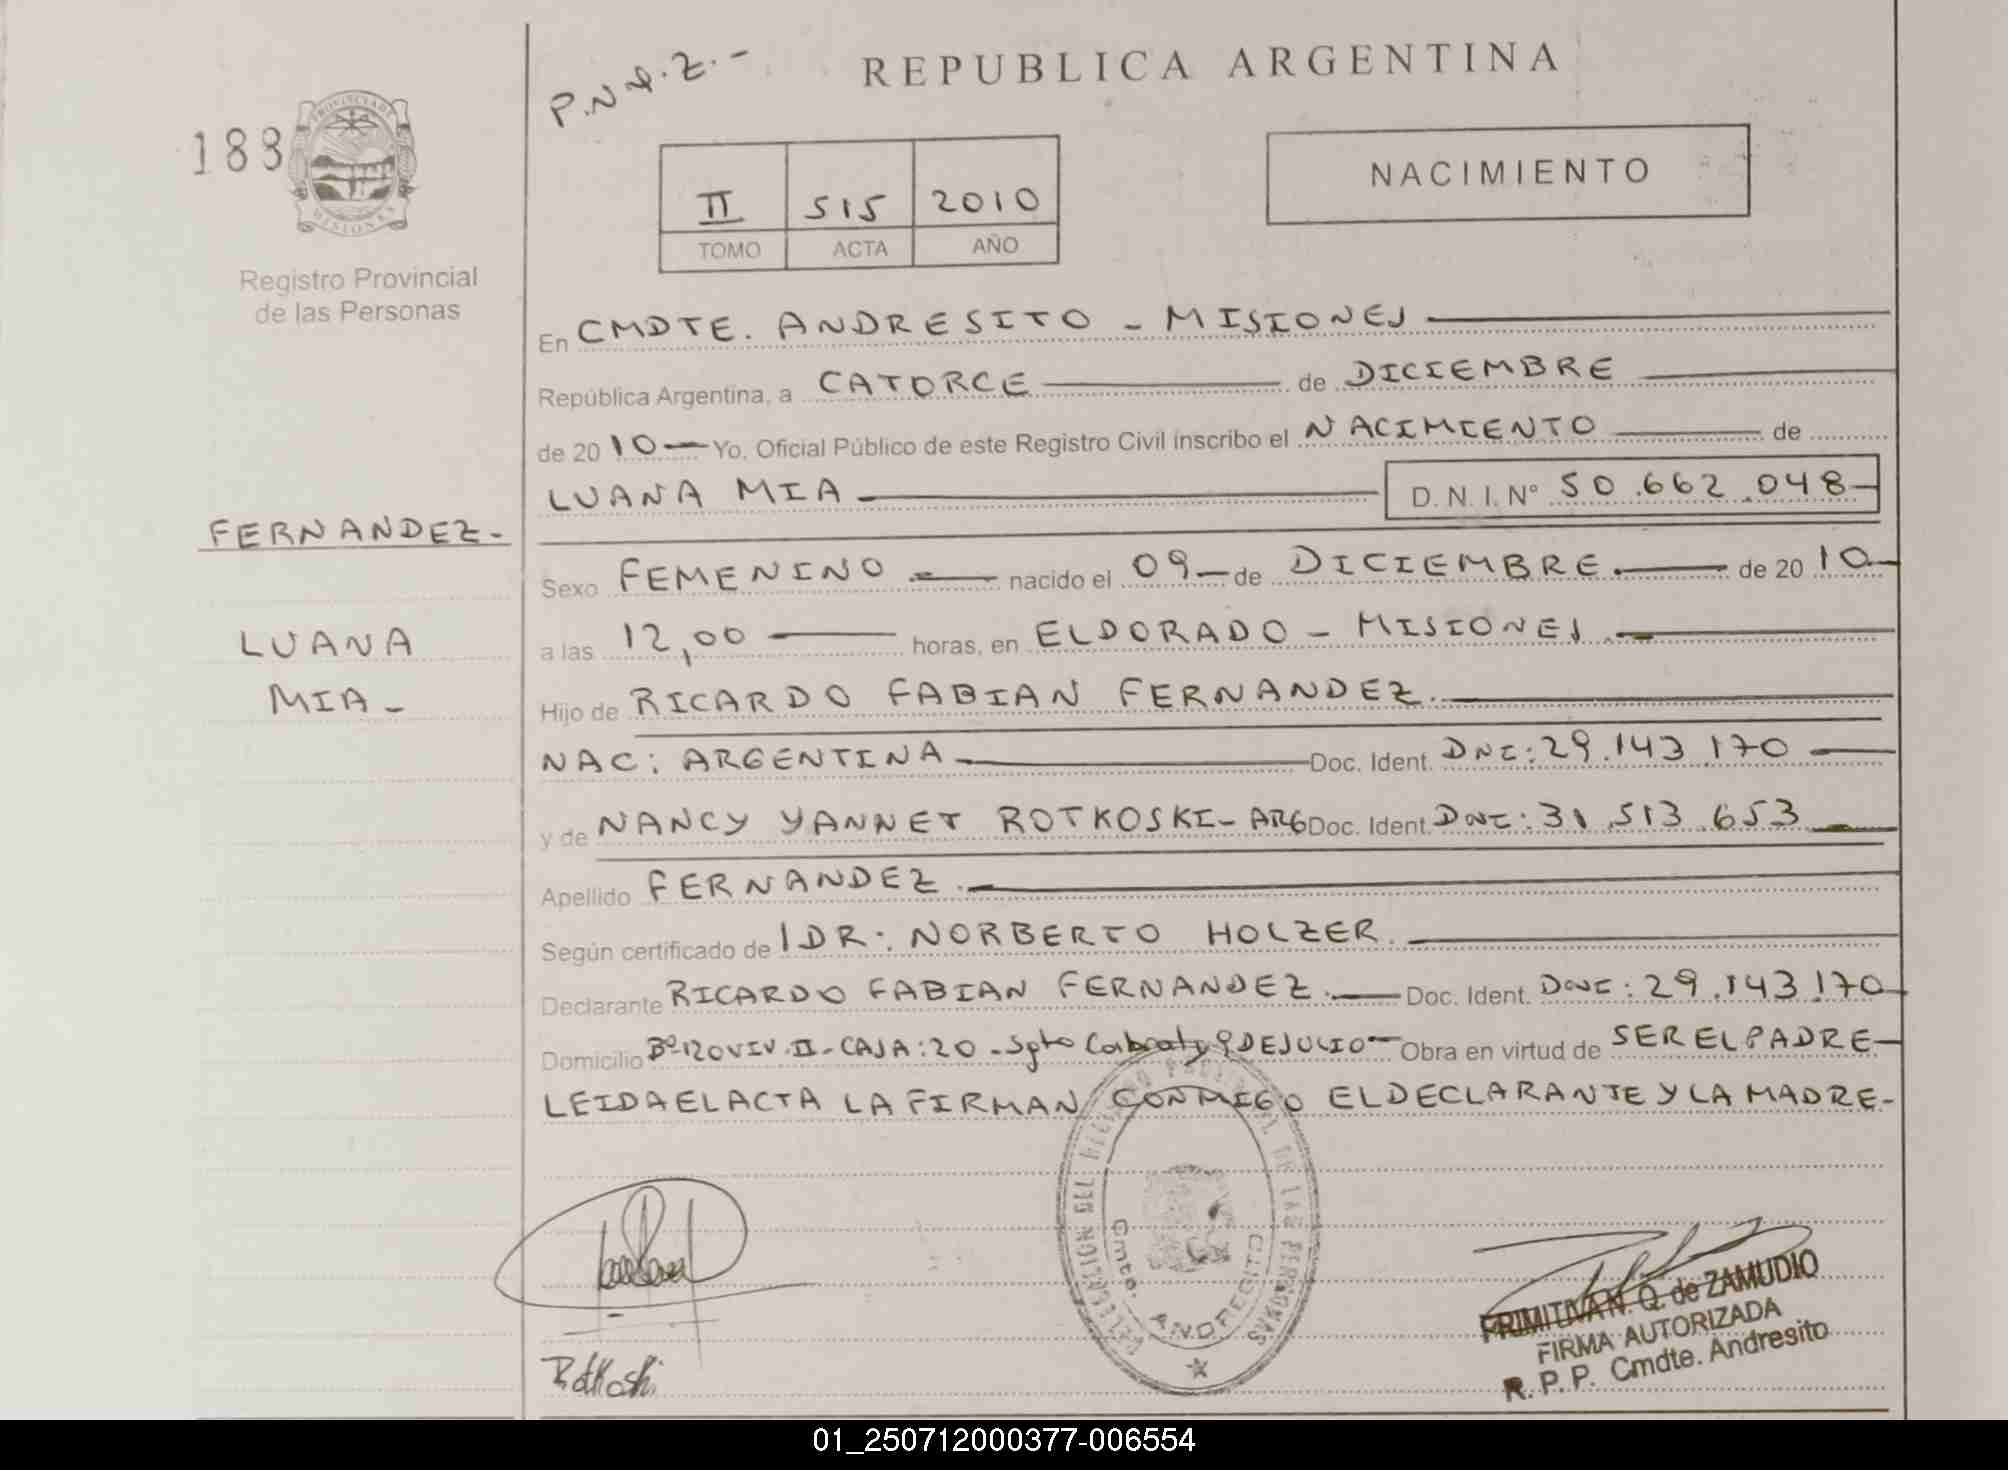 P.N.&.Z.-
REPUBLICA ARGENTINA
188
PROVINCIA DE
MISIONES
Registro Provincial
de las Personas
NACIMIENTO
II 515 2010
TOMO ACTA AÑO
En CMDTE. ANDRESITO - MISIONES
República Argentina, a CATORCE de DICIEMBRE
de 2010 Yo, Oficial Público de este Registro Civil inscribo el NACIMIENTO de
LUANA MIA D.N.I. Nº 50.662.048
FERNANDEZ-
LUANA
MIA-
Sexo FEMENINO nacido el 09 de DICIEMBRE de 2010
a las 12,00 horas, en ELDORADO - MISIONES
Hijo de RICARDO FABIAN FERNANDEZ
NAC: ARGENTINA Doc. Ident. DNI: 29.143.170
y de NANCY YANNET ROTKOSKI- ARG Doc. Ident. DNI: 31.513.653
Apellido FERNANDEZ
Según certificado de DR: NORBERTO HOLZER
Declarante RICARDO FABIAN FERNANDEZ Doc. Ident. DNI: 29.143.170
Domicilio Bº 120 VIV. II - CASA: 20 - Sgto Cabral y 9 DE JULIO Obra en virtud de SER EL PADRE
LEIDA EL ACTA LA FIRMAN CONMIGO EL DECLARANTE Y LA MADRE-
DELEGACION DEL REGISTRO PROVINCIAL DE LAS PERSONAS
Cmte. ANDRECITO
Rotkoski
PRIMITIVA N. Q. de ZAMUDIO
FIRMA AUTORIZADA
R. P. P. Cmdte. Andresito
01_250712000377-006554